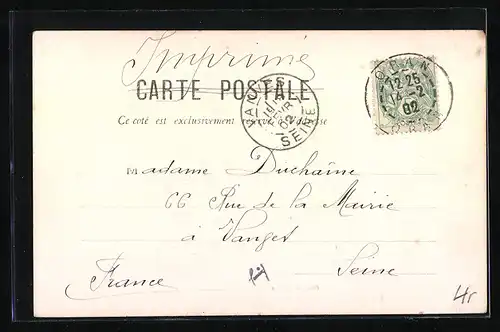 Imprimé
CARTE POSTALE
Ce côté est exclusivement réservé à l'adresse
VANVES
FEVR
02
SEINE
ORAN
12 25
02
ORAN
Madame Duchaîne
66 Rue de la Mairie
à Vanves
Seine
France